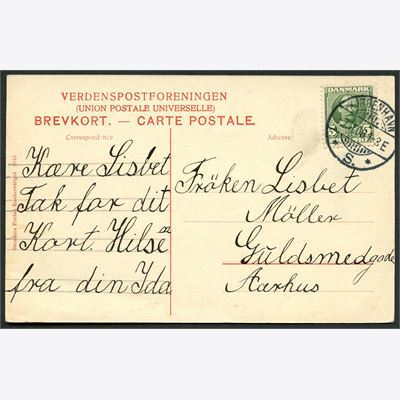 VERDENSPOSTFORENINGEN
(UNION POSTALE UNIVERSELLE)
BREVKORT. — CARTE POSTALE.
Correspondance
Adresse
DANMARK
Kære Lisbet
Tak for dit
Kort. Hilsen
fra din Ida
Fröken Lisbet
Möller
Guldsmedgade
Aarhus